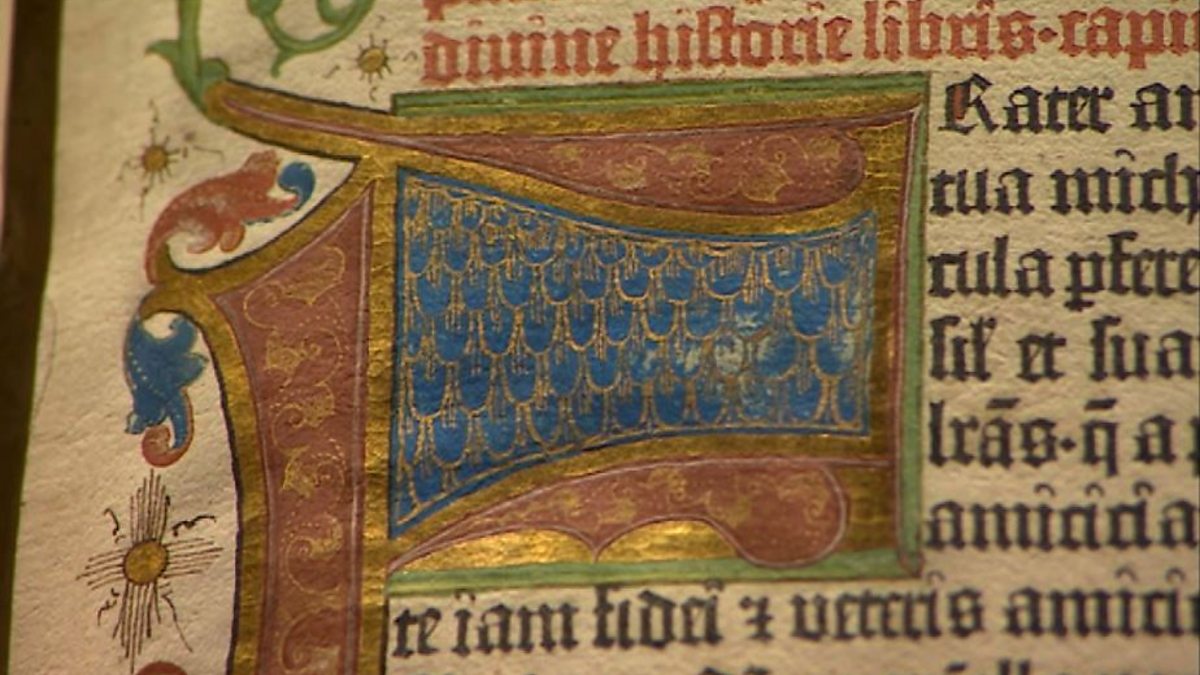 divine historie libris·capi
F Rater am
tua mich
cula pfere
sil' et sua
lr̄as·q̄ a p
amicicia
te iam fidei ⁊ veteris amici